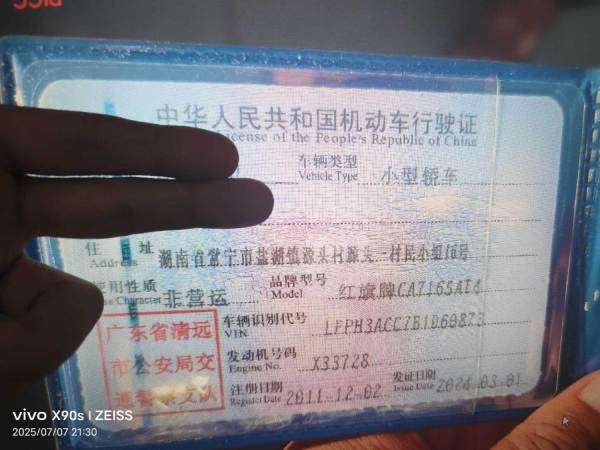 中华人民共和国机动车行驶证
License of the People's Republic of China
车辆类型 小型轿车
Vehicle Type
住 址 湖南省常宁市盐湖镇源头村源头一村民小组16号
Address
使用性质 非营运
Use Character
品牌型号 红旗牌CA7165AT4
Model
广东省清远
市公安局交
车辆识别代号 LFPH3ACC7B1D60873
VIN
发动机号码 X33728
Engine No.
注册日期 2011-12-02
Register Date
发证日期 2024-03-01
Issue Date
vivo X90s | ZEISS
2025/07/07 21:30